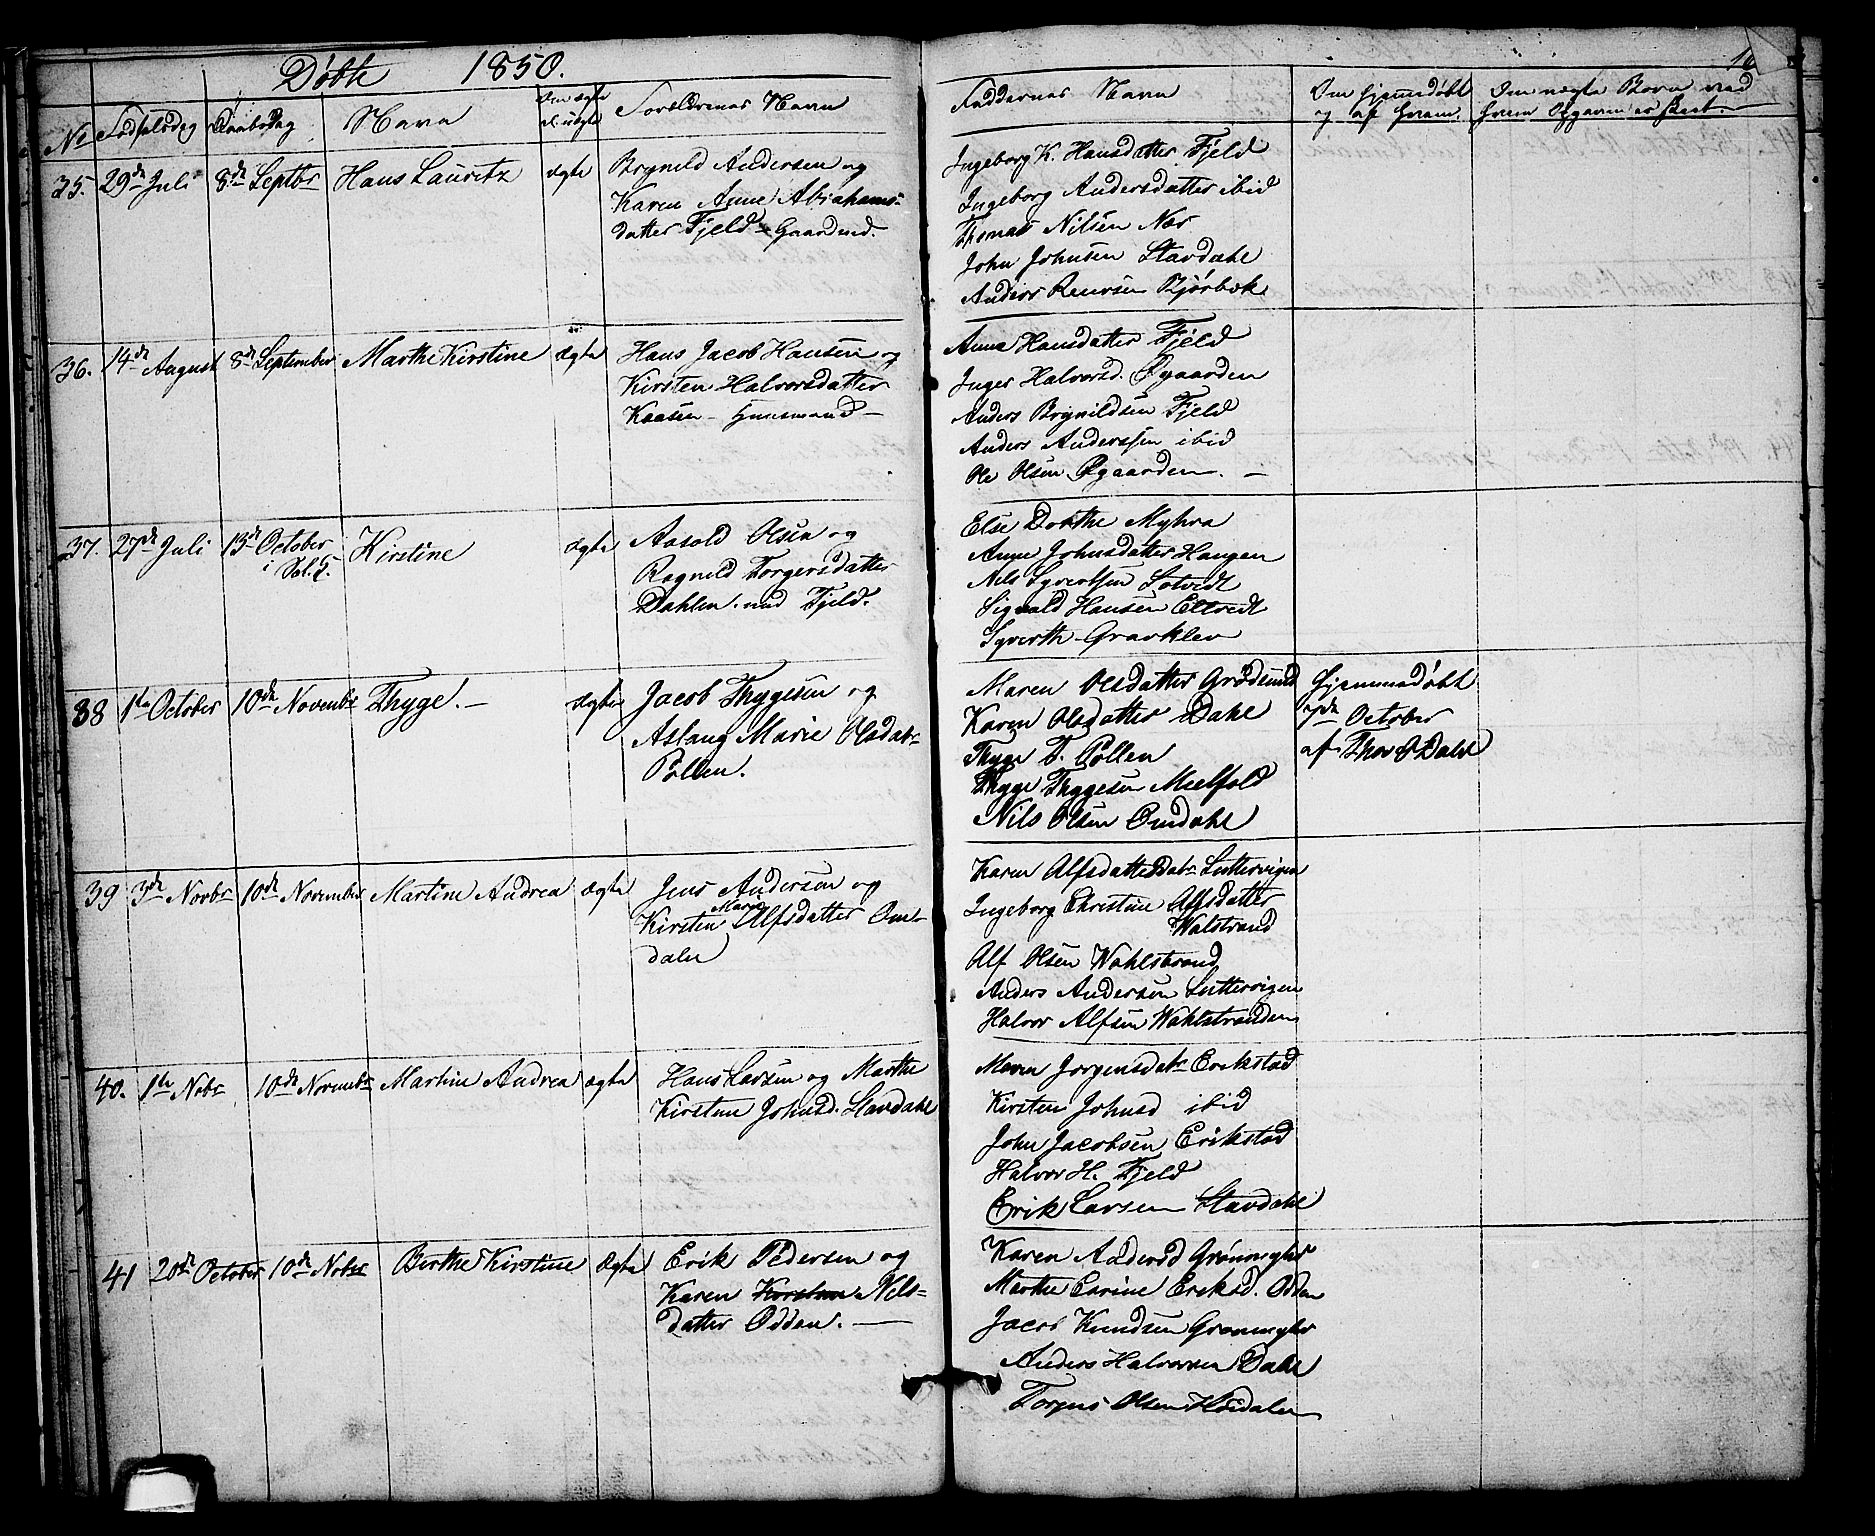 Døbte 1850.
16
No Fødselsdag Daabsdag Navn Om ægte el. uægte Forældrenes Navn Faddernes Navn Om hjemmedøbt og af hvem. Om uægte Børn ved hvem Opgaven er skeet.
35. 29de Juli 8de Septbr Hans Lauritz ægte Brynild Andersen og
Karen Anne Abrahams-
datter Fjeld Gaardmd.
Ingeborg K. Hansdatter Fjeld
Ingeborg Andersdatter ibid
Thomas Nilsen Næs
John Johnsen Stavdahl
Anders Reiersen Bjørbæk
36. 14de August 8de September Marthe Kirstine ægte Hans Jacob Hansen og
Kirsten Halvorsdatter
Kaasen - Huusmand -
Anna Hansdatter Fjeld
Inger Halvorsd. Øgaarden
Anders Brynildsen Fjeld
Anders Anderssen ibid
Ole Olsen Øgaarden. -
37. 27de Juli 13de October i Sol. G. Kirstine ægte Aasold Olsen og
Ragnild Torgersdatter
Dahlen. und Fjeld.
Else Dorthe Myhra
Anne Johnsdatter Haugen
Nils Syvertsen Lotvedt
Sigvald Hansen Eltvedt
Syverth Gravklev
38 1ste October 10de Novembr Thyge. - ægte Jacob Thygesen og
Aslaug Marie Olsdatr
Pollen.
Maren Olsdatter Grødsund
Karen Olsdatter Dahl
Thyge T. Pollen
Thyge Thygesen Meelfald
Nils Olsen Omdahl
Hjemmedøbt
7de October
af Thor O Dahl
39 3de Novbr 10de November Martine Andrea ægte Jens Andersen og
Kirsten Marie Alfsdatter Om-
dalen
Karen Alfsdatter Datr Luttervigen
Ingeborg Christine Alfsdatter
Walstrand
Alf Olsen Wahlstrand
Anders Andersen Luttervigen
Halvor Alfsen Wahlstranden
40. 1ste Nobr 10de Novembr Martine Andrea ægte Hans Larsen og Marthe
Kirstine Johnsd. Stavdahl
Maren Jørgensdatr Erikstad
Kirsten Johnsd ibid
John Jacobsen Erikstad
Halvor H. Fjeld
Erik Larsen Stavdahl
41 20de October 10de Nobr Birthe Kirstine ægte Erik Pedersen og
Karen Kirstine Nils-
datter Odden. -
Karen Andersd Grønmyhr
Marthe Carine Eriksd. Odden
Jacob Knudsen Grønmyhr
Anders Halvorsen Dahl
Torgus Olsen Høidalen